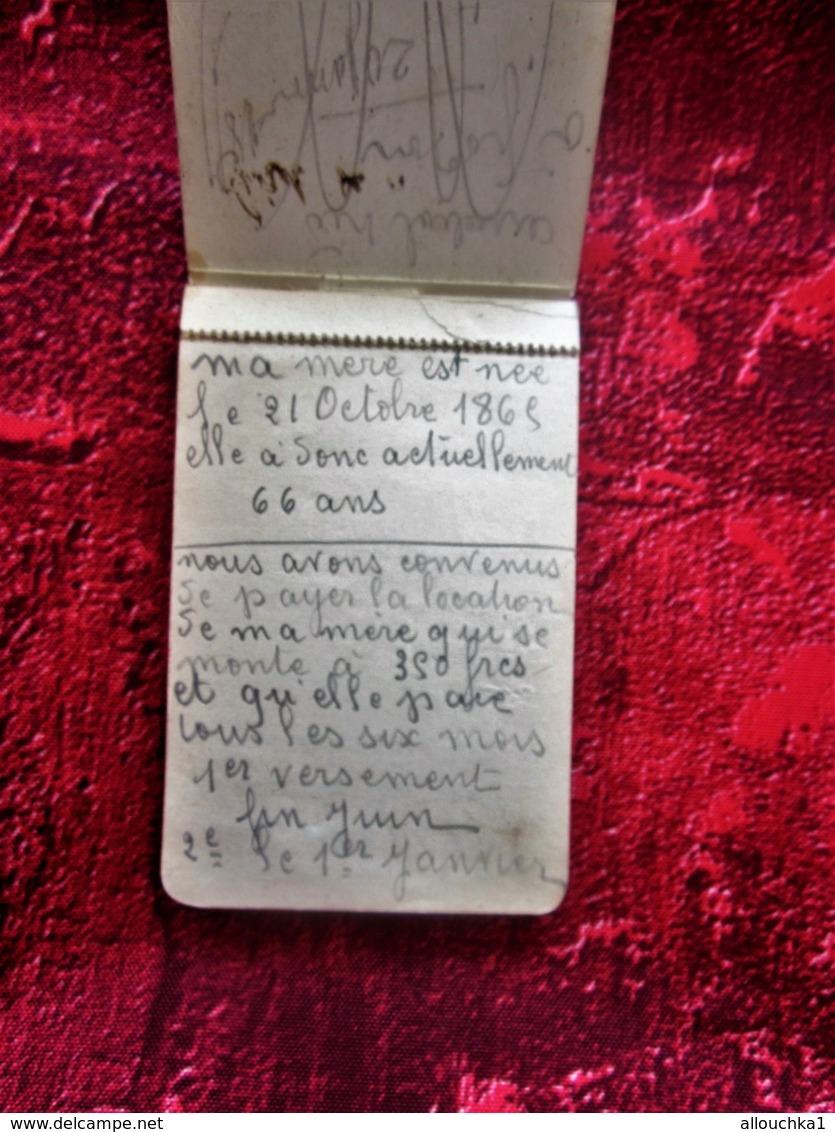 ma mere est née
Le 21 Octobre 1865
elle à donc actuellement
66 ans
nous avons convenus
de payer la location
de ma mère qui se
monte à 350 frcs
et qu'elle paie
tous les six mois
1er versement
fin Juin
2e le 1er Janvier
delcampe.net
allouchka1